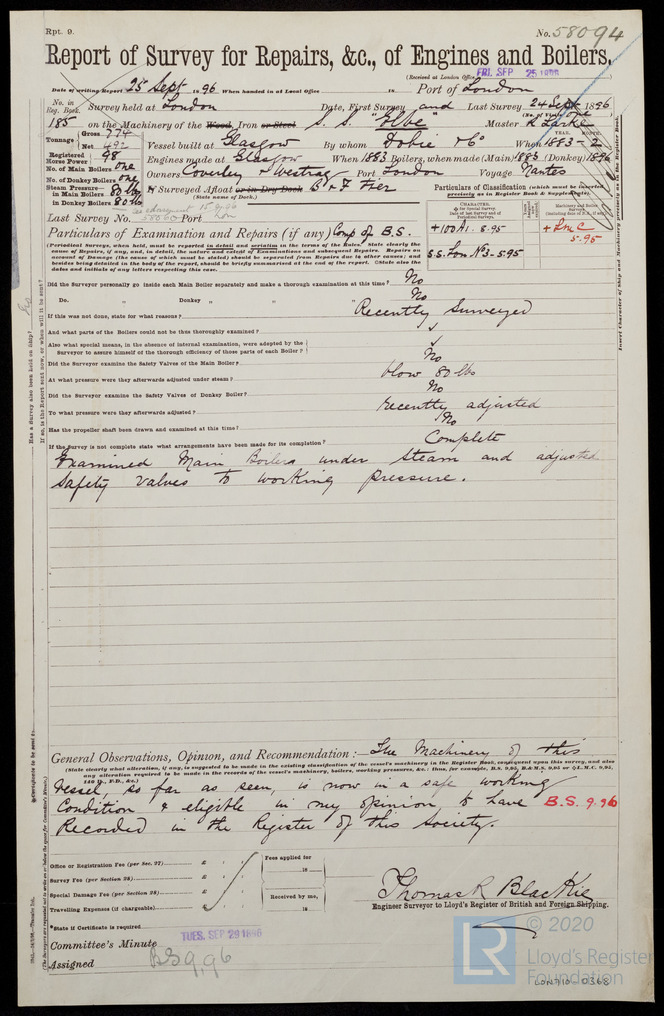 Rpt. 9.
No. 58094
Report of Survey for Repairs, &c., of Engines and Boilers.
(Received at London Office FRI. SEP 25 1896
Date of writing Report 25 Sept 1896 When handed in at Local Office 18 Port of London
No. in Reg. Book. Survey held at London Date, First Survey and Last Survey 24 Sept 1896
(No. of Visits one
185 on the Machinery of the Wood, Iron or Steel S. S. "Elbe" Master R Larke
Tonnage Gross 774 Net 492 Vessel built at Glasgow By whom Dobie & Co When 1883-2
YEAR. MONTH.
Registered Horse Power 98 Engines made at Glasgow When 1883 Boilers, when made (Main) 1883 (Donkey) 1896
No. of Main Boilers one Owners Coverley & Westray Port London Voyage Nantes
No. of Donkey Boilers one
Steam Pressure in Main Boilers 80 lbs If Surveyed Afloat or in Dry Dock
(State name of Dock.)
in Donkey Boilers 80 lbs
Last Survey No. 58060 Port Lon
15.9.96
Particulars of Classification (which must be inserted precisely as in Register Book & Supplements).
+100A1. 8.95
S.S. Lon No3-5.95
+LMC 5.95
Particulars of Examination and Repairs (if any) Comp of B.S.
(Periodical Surveys, when held, must be reported in detail and seriatim in the terms of the Rules. State clearly the
cause of Repairs, if any, and, in detail, the nature and extent of Examinations and subsequent Repairs. Repairs on
account of Damage (the cause of which must be stated) should be separated from Repairs due to other causes; and
besides being detailed in the body of the report, should be briefly summarised at the end of the report. State also the
dates and initials of any letters respecting this case.)
Did the Surveyor personally go inside each Main Boiler separately and make a thorough examination at this time? No
Do. " Donkey " " " No
If this was not done, state for what reasons? Recently Surveyed
And what parts of the Boilers could not be thus thoroughly examined? ✓
Also what special means, in the absence of internal examination, were adopted by the
Surveyor to assure himself of the thorough efficiency of those parts of each Boiler? ✓
Did the Surveyor examine the Safety Valves of the Main Boiler? No
At what pressure were they afterwards adjusted under steam? blow 80 lbs
Did the Surveyor examine the Safety Valves of Donkey Boiler? No
To what pressure were they afterwards adjusted? recently adjusted
Has the propeller shaft been drawn and examined at this time? No
If the Survey is not complete state what arrangements have been made for its completion? Complete
Examined Main Boilers under steam and adjusted
safety valves to working pressure.
General Observations, Opinion, and Recommendation:— The Machinery of this
(State clearly what alteration, if any, is suggested to be made in the existing classification of the vessel's machinery in the Register Book, consequent upon this survey, and also
any alteration required to be made in the records of the vessel's machinery, boilers, working pressures, &c.: thus, for example, B.S. 9,95, B.&M.S. 9,95 or +L.M.C. 9,95,
140 lb., F.D., &c.)
Vessel, so far as seen, is now in a safe working
Condition & eligible in my opinion, to have B.S. 9.96
Recorded in the Register of this Society.
Office or Registration Fee (per Sec. 27) £ : :
Survey Fee (per Section 28) £ : :
Special Damage Fee (per Section 28) £ : :
Travelling Expenses (if chargeable) £ : :
Fees applied for 18
Received by me, 18
Thomas R Blackie
Engineer Surveyor to Lloyd's Register of British and Foreign Shipping.
*State if Certificate is required
Committee's Minute TUES. SEP 29 1896
Assigned BS 9,96
© 2020
Lloyd's Register
Foundation
LON710-0368